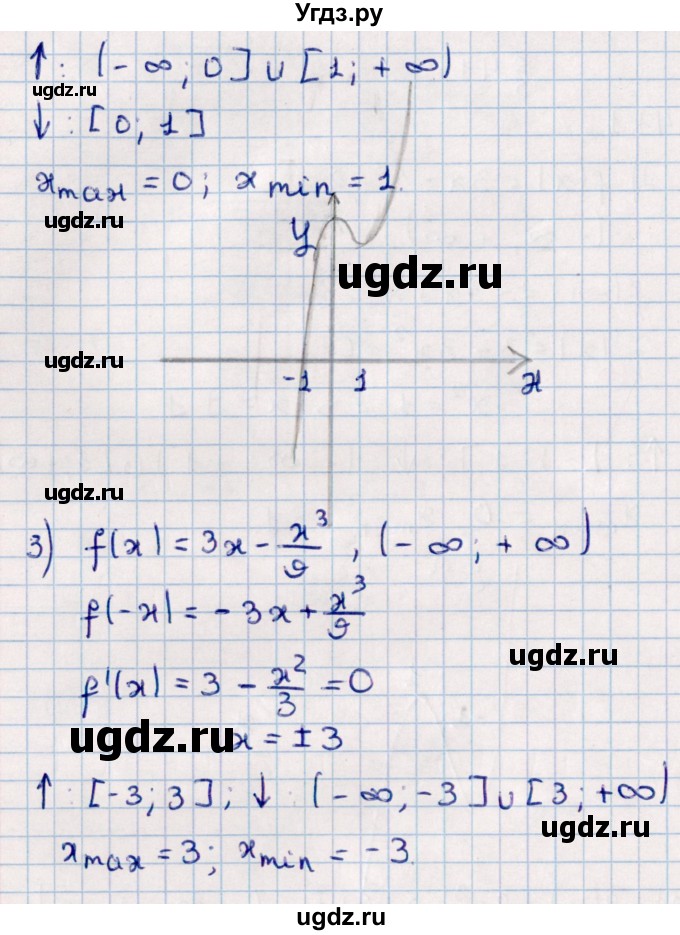 Угдз.ру
↑: (-∞; 0] ∪ [1; +∞)
ugdz.ru
↓: [0; 1]
x max = 0; x min = 1.
ugdz.ru
y
ugdz.ru
ugdz.ru
-1 1 x
ugdz.ru
3) f(x) = 3x - x³/9, (-∞; +∞)
f(-x) = -3x + x³/9
ugdz.ru
f'(x) = 3 - x²/3 = 0
ugdz.ru
x = ±3
↑: [-3; 3]; ↓: (-∞; -3] ∪ [3; +∞)
ugdz.ru
x max = 3; x min = -3.
ugdz.ru
ugdz.ru